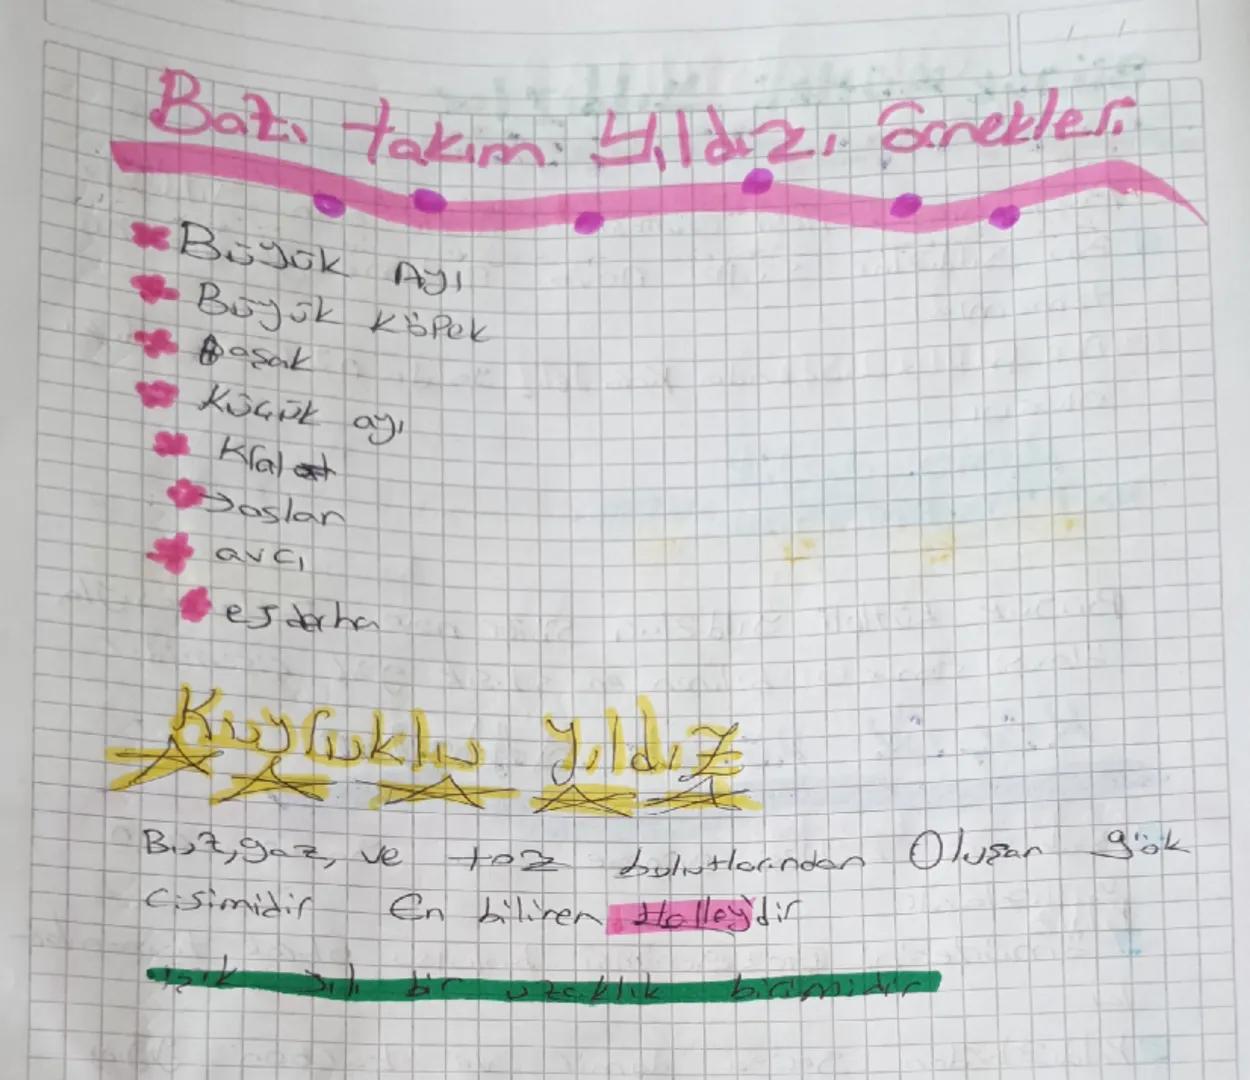 Bazı takım yıldızı örnekleri
Büyük Ayı
Büyük köpek
Başak
Küçük ayı
Kral
→ aslan
avcı
ejderha
Kuyruklu yıldız
Buz, gaz, ve toz bulutlarından Oluşan gök
cisimidir En biliren Halley'dir
ışık yılı bir uzaklık birimidir